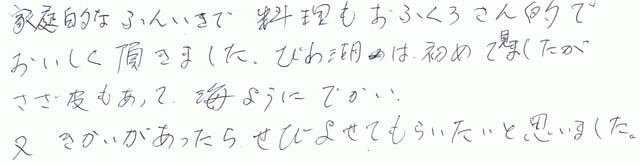 家庭的なふんいきで 料理もおふくろさん的で
おいしく頂きました。びわ湖は、初めて見ましたが
さざ波もあって、海ようにでかい、
又 きかいがあったら ぜひよせてもらいたいと思いました。